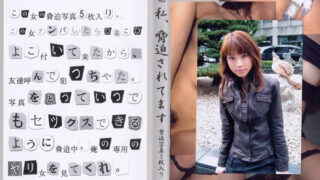 この女の脅迫写真5枚入り。
この女ナンパしたら
よこ付いて来たから、
友達呼んで犯っちゃた。
写真をとっていつで
もセックスできる
ように脅迫中。俺の専用の
ヤリ女を見てくれ。
私、脅迫されてます
脅迫写真5枚入り